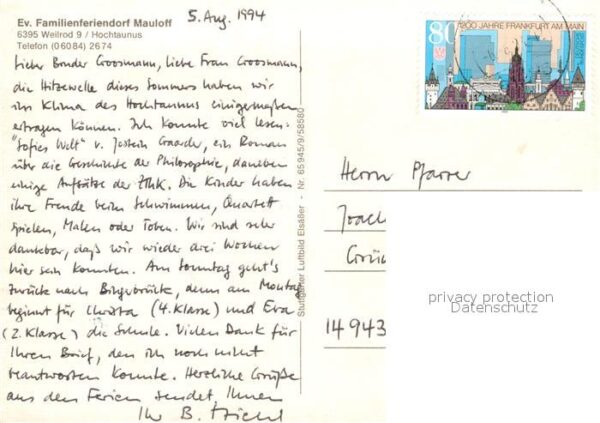 5. Aug. 1994
Ev. Familienferiendorf Mauloff
6395 Weilrod 9 / Hochtaunus
Telefon (0 60 84) 26 74
Lieber Bruder Groosmann, liebe Frau Groosmann,
die Hitzewelle dieses Sommers haben wir
im Klima des Hochtaunus einigermaßen
ertragen können. Ich konnte viel lesen:
"Sofies Welt" v. Jostein Gaarder, ein Roman
über die Geschichte der Philosophie, daneben
einige Aufsätze der ZThK. Die Kinder haben
ihre Freude beim Schwimmen, Quartett
spielen, Malen oder Toben. Wir sind sehr
dankbar, daß wir wieder drei Wochen
hier sein konnten. Am Sonntag geht's
zurück nach Bingerbrück, denn am Montag
beginnt für Christa (4. Klasse) und Eva
(2. Klasse) die Schule. Vielen Dank für
Ihren Brief, den ich noch nicht
beantworten konnte. Herzliche Grüße
aus den Ferien sendet Ihnen
Ihr B.
Stuttgarter Luftbild Elsäßer - Nr. 65 945/9/58580
80
1200 JAHRE FRANKFURT AM MAIN
Herrn Pfarrer
Joac
Grü
14943
privacy protection
Datenschutz